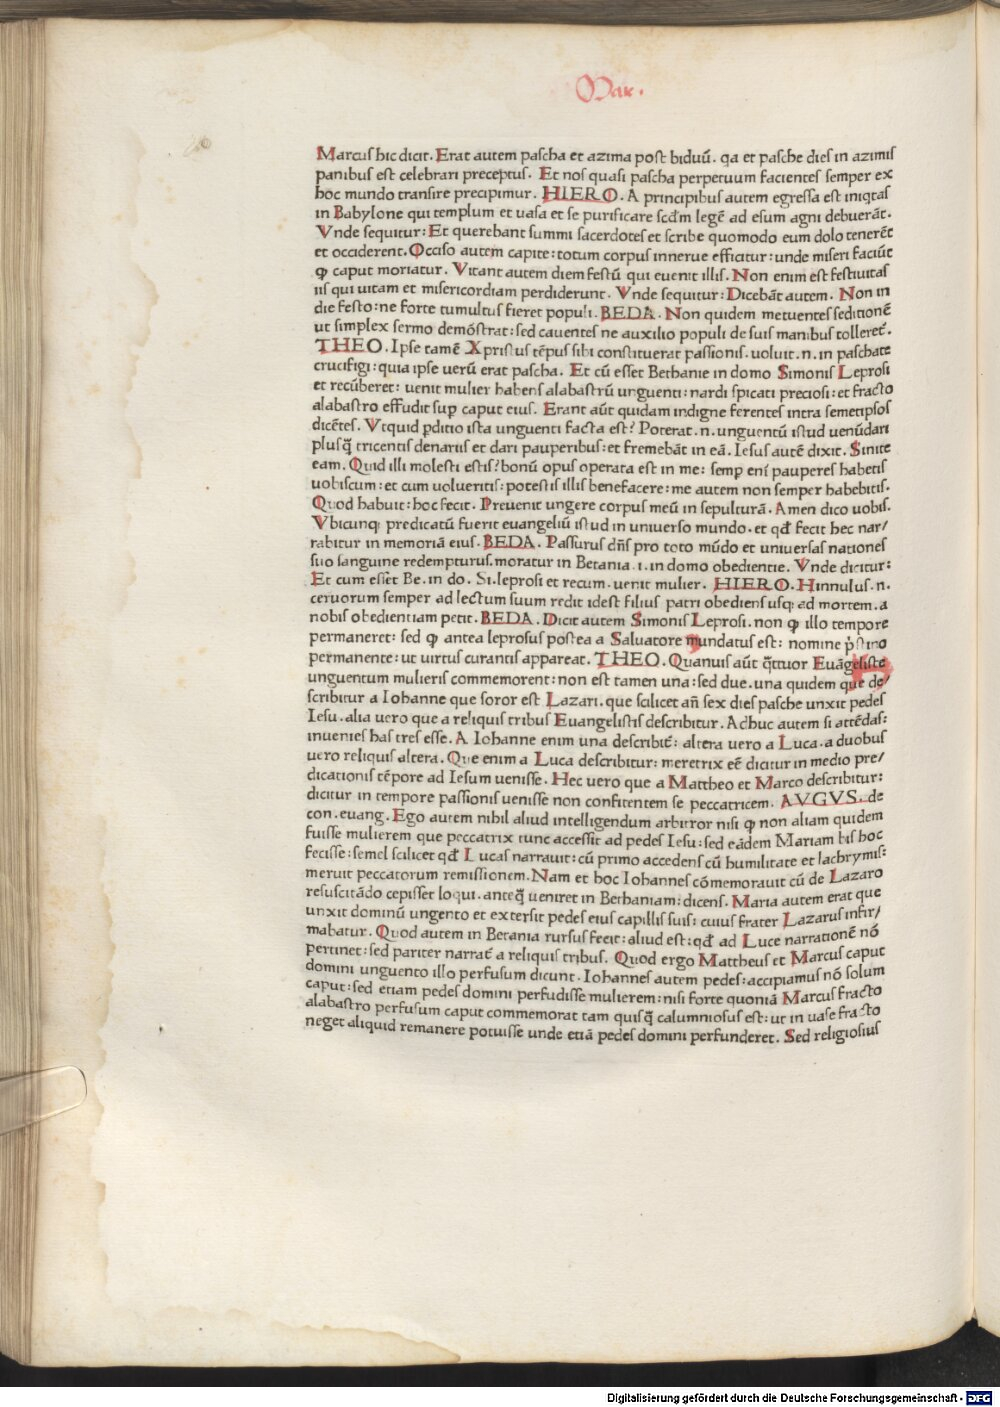 Mar.
Marcus hic dicit. Erat autem pascha et azima post biduū. qa et pasche dies in azimis
panibus est celebrari preceptus. Et nos quasi pascha perpetuum facientes semper ex
hoc mundo transire precipimur. HIERO. A principibus autem egressa est iniqtas
in Babylone qui templum et uasa et se purificare scđm legē ad esum agni debuerāt.
Vnde sequitur: Et querebant summi sacerdotes et scribe quomodo eum dolo tenerēt
et occiderent. Occiso autem capite: totum corpus innerue efficitur: unde miseri faciūt
ꝙ caput moriatur. Vitant autem diem festū qui euenit illis. Non enim est festiuitas
iis qui uitam et misericordiam perdiderunt. Vnde sequitur: Dicebāt autem. Non in
die festo: ne forte tumultus fieret populi. BEDA. Non quidem metuentes seditionē
ut simplex sermo demōstrat: sed cauentes ne auxilio populi de suis manibus tolleret̄.
THEO. Ipse tamē Xpristus tēpus sibi constituerat passionis. uoluit .n. in paschate
crucifigi: quia ipse uerū erat pascha. Et cū esset Bethanie in domo Simonis Leprosi
et recūberet: uenit mulier habens alabastrū unguenti: nardi spicati preciosi: et fracto
alabastro effudit sup caput eius. Erant aūt quidam indigne ferentes intra semetipsos
dicētes. Vtquid pditio ista unguenti facta est? Poterat .n. unguentū istud uenūdari
plusq̄ tricentis denariis et dari pauperibus: et fremebāt in eā. Iesus autē dixit. Sinite
eam. Quid illi molesti estis? bonū opus operata est in me: semp eni pauperes habetis
uobiscum: et cum uolueritis: potestis illis benefacere: me autem non semper habebitis.
Quod habuit: hoc fecit. Preuenit ungere corpus meū in sepulturā. Amen dico uobis.
Vbicunq; predicatū fuerit euangeliū istud in uniuerso mundo. et qđ fecit hec nar/
rabitur in memoriā eius. BEDA. Passurus dn̄s pro toto mūdo et uniuersas nationes
suo sanguine redempturus. moratur in Betania .i. in domo obedientie. Vnde dicitur:
Et cum esset Be. in do. Si. leprosi et recum. uenit mulier. HIERO. Hinnulus .n.
ceruorum semper ad lectum suum redit idest filius patri obediens usq; ad mortem. a
nobis obedientiam petit. BEDA. Dicit autem Simonis Leprosi. non ꝙ illo tempore
permaneret: sed ꝙ antea leprosus postea a Saluatore mundatus est: nomine pristino
permanente: ut uirtus curantis appareat. THEO. Quanuis aūt q̄ttuor Euāgeliste
unguentum mulieris commemorent: non est tamen una: sed due. una quidem que de/
scribitur a Iohanne que soror est Lazari. que scilicet an̄ sex dies pasche unxit pedes
Iesu. alia uero que a reliquis tribus Euangelistis describitur. Adhuc autem si attēdas:
inuenies has tres esse. A Iohanne enim una describit̄: altera uero a Luca. a duobus
uero reliquis altera. Que enim a Luca describitur: meretrix eē dicitur in medio pre/
dicationis tēpore ad Iesum uenisse. Hec uero que a Mattheo et Marco describitur:
dicitur in tempore passionis uenisse non confitentem se peccatricem. AVGVS. de
con. euang. Ego autem nihil aliud intelligendum arbitror nisi ꝙ non aliam quidem
fuisse mulierem que peccatrix tunc accessit ad pedes Iesu: sed eādem Mariam bis hoc
fecisse: semel scilicet qđ Lucas narrauit: cū primo accedens cū humilitate et lachrymis:
meruit peccatorum remissionem. Nam et hoc Iohannes cōmemorauit cū de Lazaro
resuscitādo cepisset loqui. anteq̄ ueniret in Bethaniam: dicens. Maria autem erat que
unxit dominū ungento et extersit pedes eius capillis suis: cuius frater Lazarus infir/
mabatur. Quod autem in Betania rursus fecit: aliud est: qđ ad Luce narrationē nō
pertinet: sed pariter narrat̄ a reliquis tribus. Quod ergo Mattheus et Marcus caput
domini unguento illo perfusum dicunt. Iohannes autem pedes: accipiamus nō solum
caput: sed etiam pedes domini perfudisse mulierem: nisi forte quoniā Marcus fracto
alabastro perfusum caput commemorat tam quisq̄ calumniosus est: ut in uase fracto
neget aliquid remanere potuisse unde etiā pedes domini perfunderet. Sed religiosius
Digitalisierung gefördert durch die Deutsche Forschungsgemeinschaft - DFG